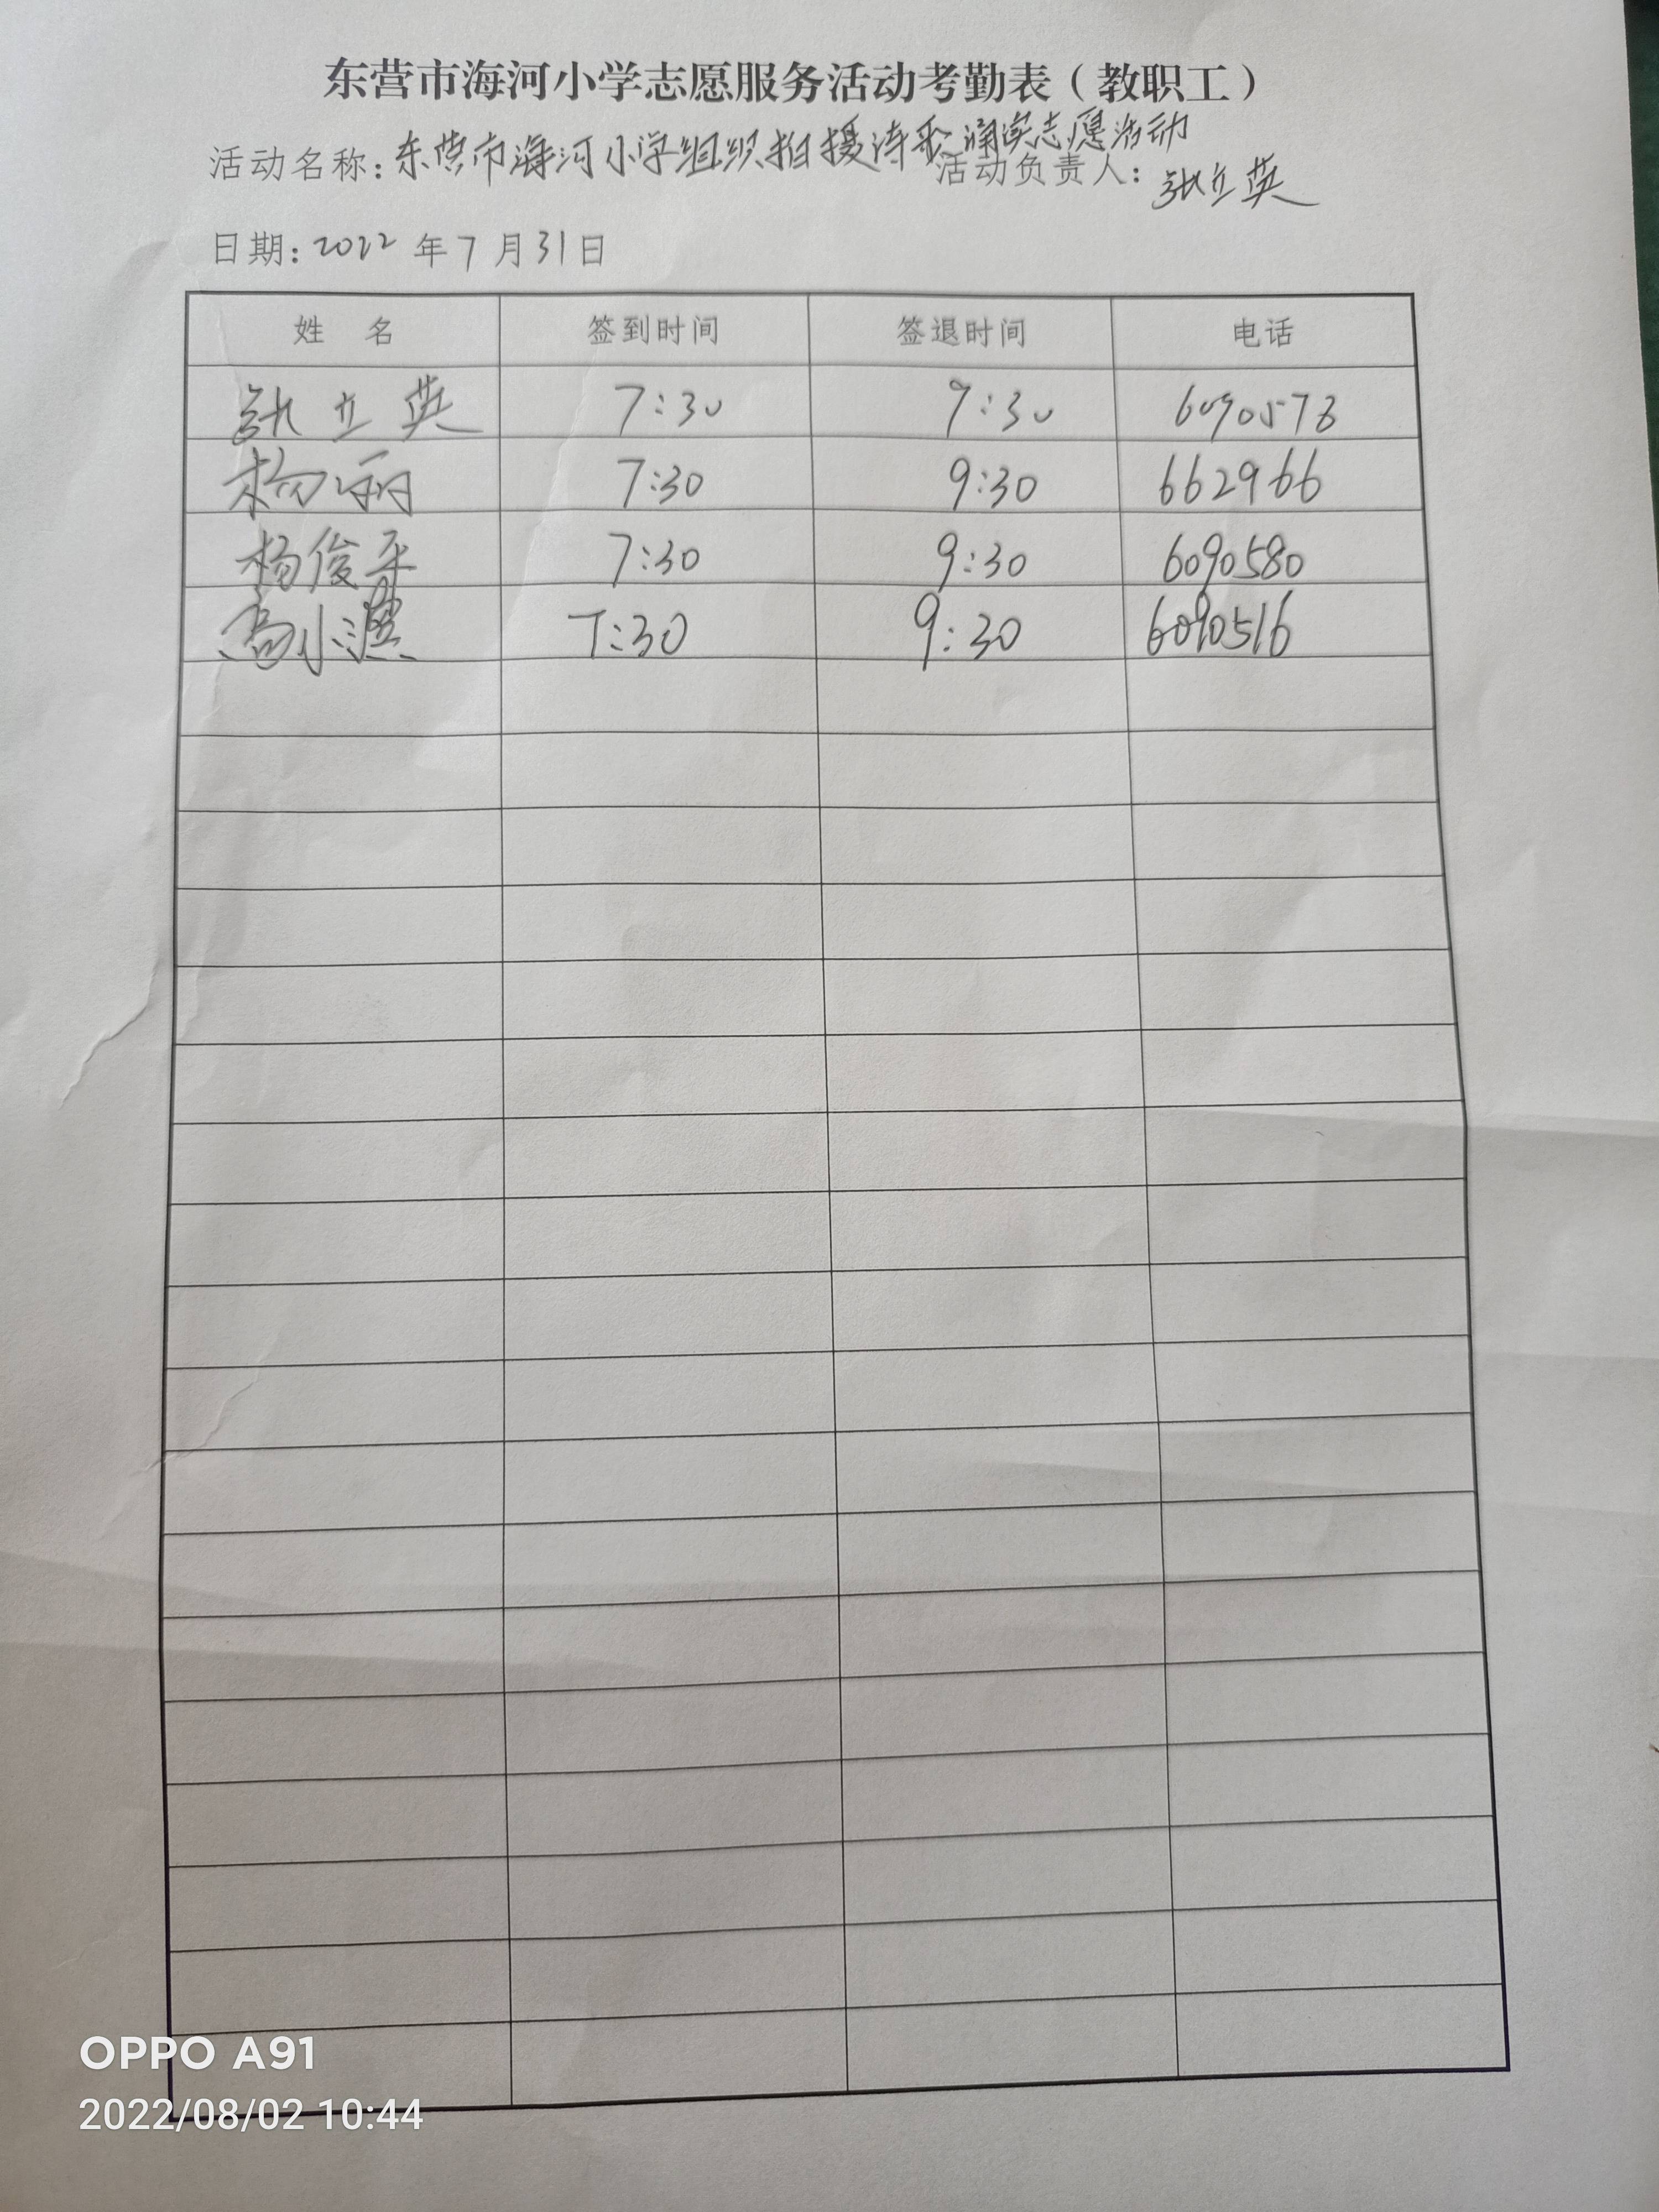 东营市海河小学志愿服务活动考勤表（教职工）
活动名称：东营市海河小学组织拍摄诗歌诵读志愿活动
活动负责人：张立英
日期：2022年7月31日
姓 名 签到时间 签退时间 电话
张立英 7:30 9:30 6090578
杨丽 7:30 9:30 662966
杨俊平 7:30 9:30 6090580
高小 7:30 9:30 6090516
OPPO A91
2022/08/02 10:44